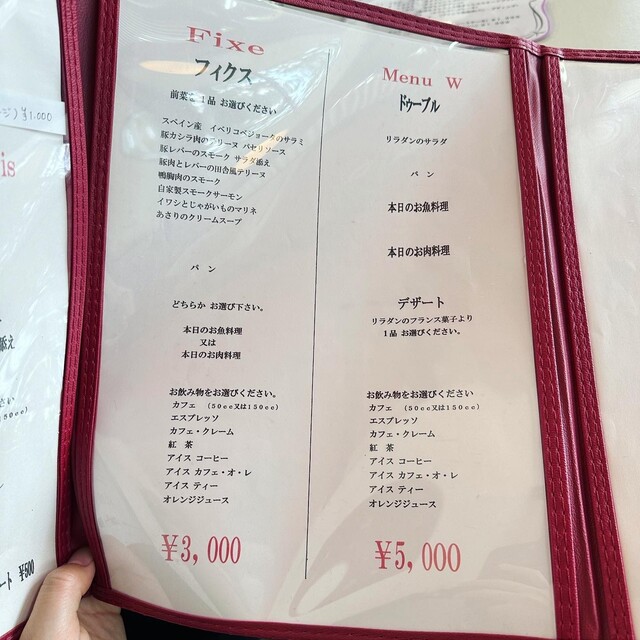 ジ)¥1,000
is
添え
さい
cc)
ート ¥500
Fixe
フィクス
前菜を1品 お選びください
スペイン産 イベリコベジョータのサラミ
豚カシラ肉のテリーヌ パセリソース
豚レバーのスモーク サラダ添え
豚肉とレバーの田舎風テリーヌ
鴨胸肉のスモーク
自家製スモークサーモン
イワシとじゃがいものマリネ
あさりのクリームスープ
パン
どちらか お選び下さい。
本日のお魚料理
又は
本日のお肉料理
お飲み物をお選びください。
カフェ (50cc又は150cc)
エスプレッソ
カフェ・クレーム
紅 茶
アイス コーヒー
アイス カフェ・オ・レ
アイス ティー
オレンジジュース
¥3,000
Menu W
ドゥーブル
リラダンのサラダ
パン
本日のお魚料理
本日のお肉料理
デザート
リラダンのフランス菓子より
1品 お選びください。
お飲み物をお選びください。
カフェ (50cc又は150cc)
エスプレッソ
カフェ・クレーム
紅 茶
アイス コーヒー
アイス カフェ・オ・レ
アイス ティー
オレンジジュース
¥5,000